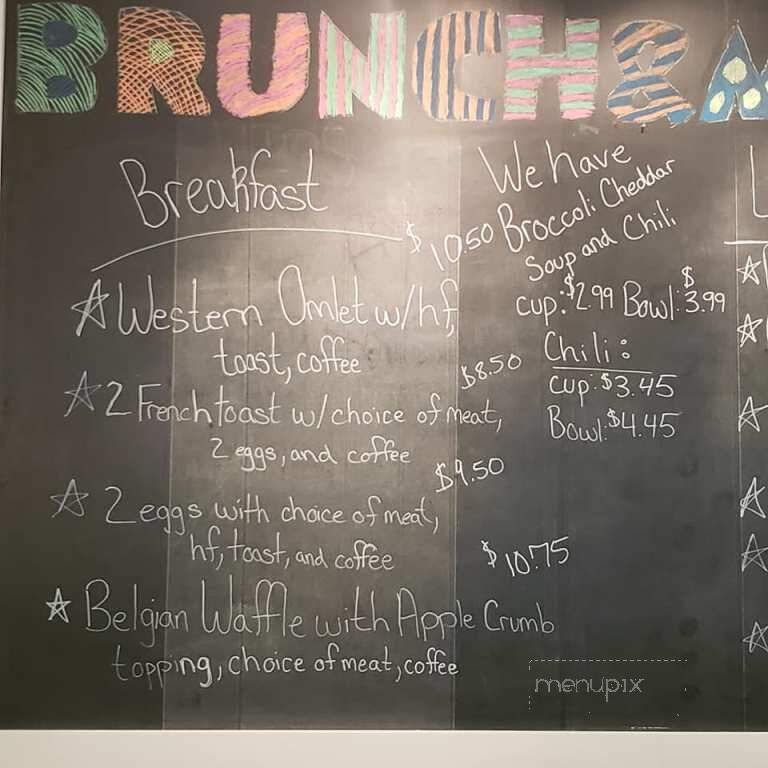 BRUNCH &
Breakfast
$10.50
☆ Western Omlet w/hf,
toast, coffee
$8.50
☆ 2 French toast w/choice of meat,
2 eggs, and coffee
$9.50
☆ 2 eggs with choice of meat,
hf, toast, and coffee
$10.75
☆ Belgian Waffle with Apple Crumb
topping, choice of meat, coffee
We have
Broccoli Cheddar
Soup and Chili
cup: $2.99 Bowl: $3.99
Chili:
cup: $3.45
Bowl: $4.45
menupix